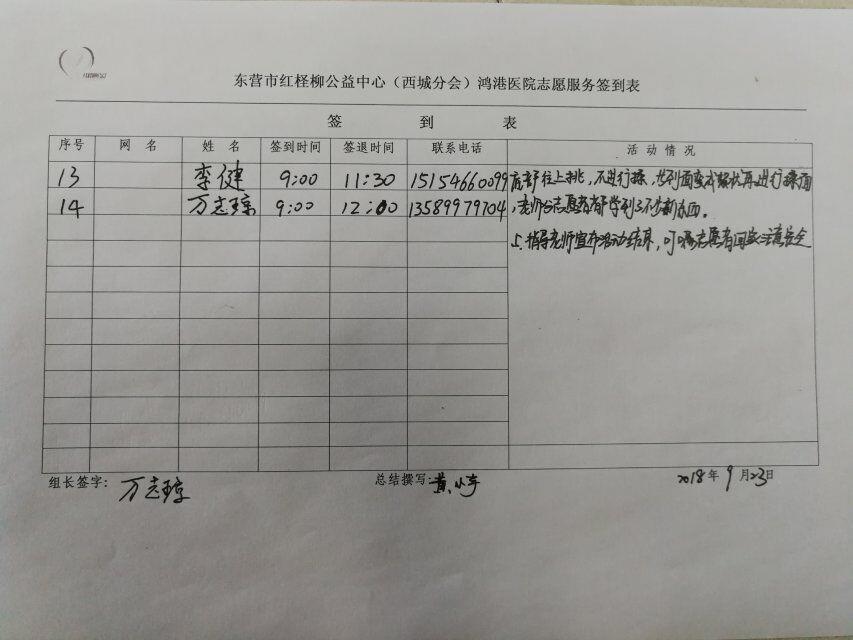 东营市红柽柳公益中心（西城分会）鸿港医院志愿服务签到表
签 到 表
序号 网 名 姓 名 签到时间 签退时间 联系电话 活动情况
13 李健 9:00 11:30 15154660099
14 万志琼 9:00 12:00 13589979704
往上挑，不进行揉，再进行揉面
，老师and志愿者都学到了不少新东西。
5.指导老师宣布活动结束，叮嘱志愿者回家注意安全
组长签字：万志琼 总结撰写：黄小 2018年9月23日